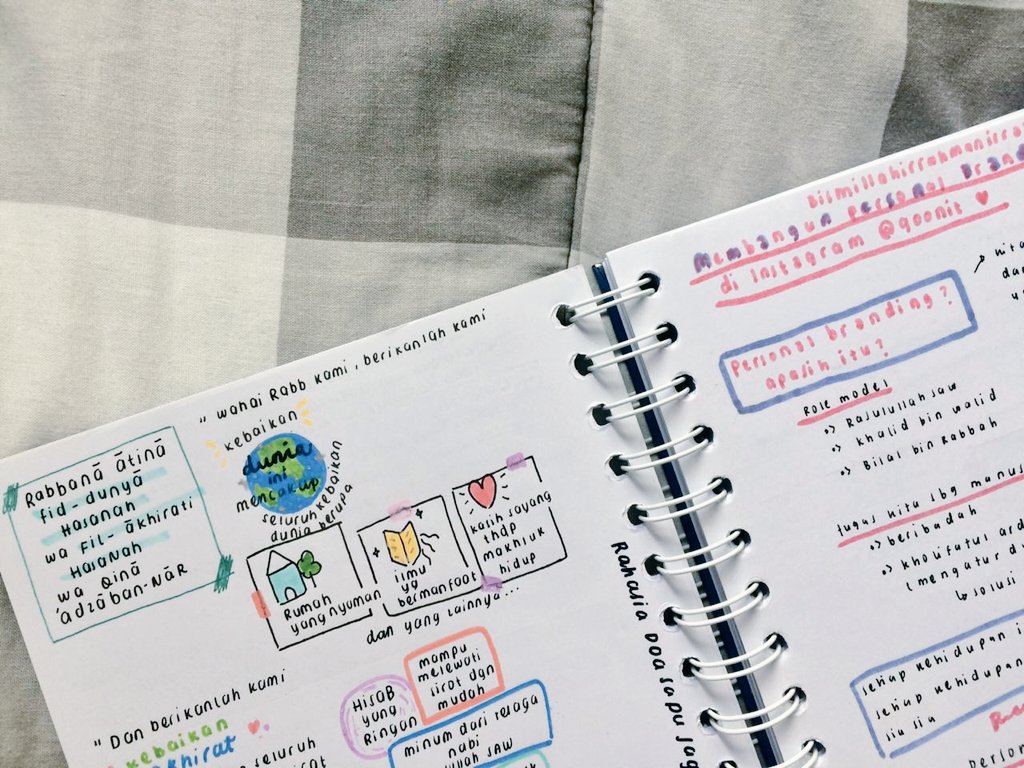 Rabbanā ātinā
fid-dunyā
Hasanah
wa Fil-ākhirati
Hasanah
wa Qinā
'adzāban-NĀR
"wahai Rabb kami, berikanlah kami
kebaikan
dunia
ini
mencakup
seluruh kebaikan
dunia berupa
Rumah
yang nyaman
ilmu
yg
bermanfaat
kasih sayang
thdp
makhluk
hidup
dan yang lainnya...
"Dan berikanlah kami
kebaikan
akhirat
seluruh
HISAB
yang
Ringan
mampu
melewati
sirot dgn
mudah
minum dari telaga
nabi
SAW
Rahasia Doa sapu
bismillahirrahmanirra
Membangun personal Brand
di Instagram @qoonit
Personal branding?
apasih itu?
Role model
Rasulullah saw
khalid bin walid
Bilal bin Rabbah
tugas kita sbg manus
beribadah
kholifatul ard
(mengatur d
solusi
setiap kehidupan i
setiap kehidupan
sia
person